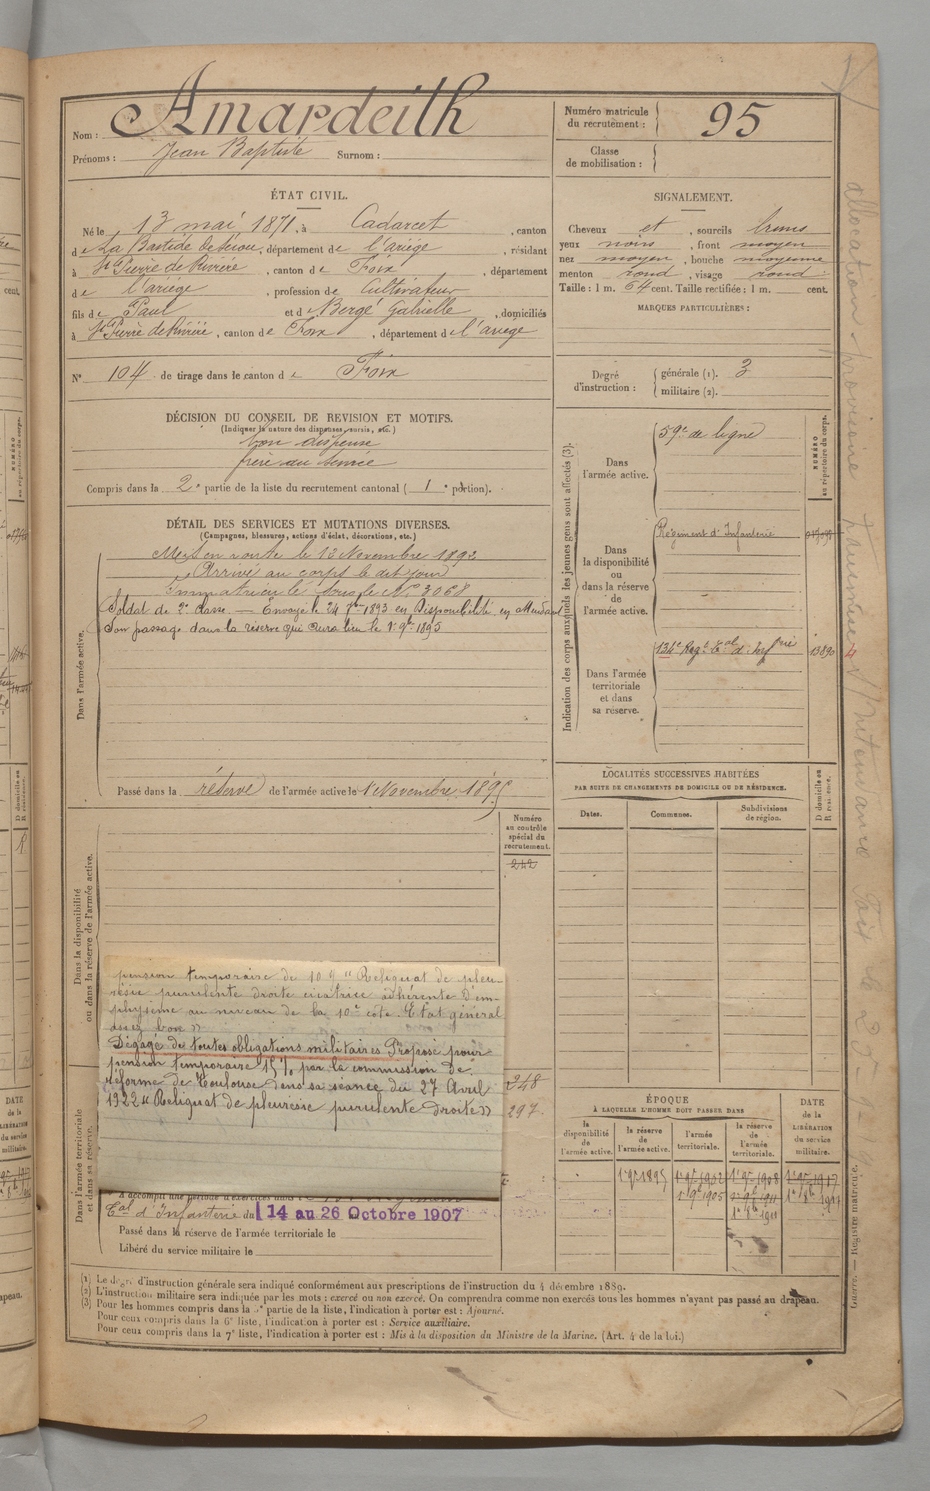 Nom : Amardeilh
Prénoms : Jean Baptiste Surnom :
Numéro matricule du recrutement : 95
Classe de mobilisation :
ÉTAT CIVIL.
Né le 13 mai 1871, à Cadarcet, canton
de La Bastide de Sérou, département de l'ariége, résidant
à St Pierre de Rivière, canton de Foix, département
de l'ariége, profession de Cultivateur
fils de Paul et de Bergé Gabrielle, domiciliés
à St Pierre de Rivière, canton de Foix, département de l'ariege
N° 104 de tirage dans le canton de Foix
SIGNALEMENT.
Cheveux et, sourcils bruns
yeux noirs, front moyen
nez moyen, bouche moyenne
menton rond, visage rond
Taille : 1 m. 64 cent. Taille rectifiée : 1 m. cent.
MARQUES PARTICULIÈRES :
Degré d'instruction : générale (1). 3
militaire (2).
DÉCISION DU CONSEIL DE REVISION ET MOTIFS.
(Indiquer la nature des dispenses, sursis, etc.)
bon dispensé
frère au service
Compris dans la 2e partie de la liste du recrutement cantonal (1e portion).
DÉTAIL DES SERVICES ET MUTATIONS DIVERSES.
(Campagnes, blessures, actions d'éclat, décorations, etc.)
Dans l'armée active.
Mis en route le 12 Novembre 1892
Arrivé au corps le dit jour
Immatriculé sous le N° 3068
Soldat de 2e classe. — Envoyé le 24 7bre 1893 en Disponibilité en attendant
Son passage dans la réserve qui aura lieu le 1er 9bre 1895
Passé dans la réserve de l'armée active le 1 Novembre 1895
Indication des corps auxquels les jeunes gens sont affectés (3).
NUMÉRO au répertoire du corps.
Dans l'armée active.
59e de ligne
Dans la disponibilité ou dans la réserve de l'armée active.
Régiment d'Infanterie
Dans l'armée territoriale et dans sa réserve.
134e Regt Tal d'Infrie
13890
LOCALITÉS SUCCESSIVES HABITÉES
PAR SUITE DE CHANGEMENTS DE DOMICILE OU DE RÉSIDENCE.
Dates. Communes. Subdivisions de région. D domicile ou R résidence.
Numéro au contrôle spécial du recrutement.
242
248
297.
Dans la disponibilité ou dans la réserve de l'armée active.
pension temporaire de 10% "Reliquat de pleu-
résie purulente droite cicatrice adhérente D'em-
physème au niveau de la 10e côte. Etat général
assez bon"
Dégagé de toutes obligations militaires Proposé pour
pension temporaire 15% par la commission de
réforme de Toulouse dans sa séance du 27 Avril
1922 "Reliquat de pleuresie purulente droite"
Dans l'armée territoriale et dans sa réserve.
A accompli une période d'exercices dans le
Tal d'Infanterie du 14 au 26 Octobre 1907
Passé dans la réserve de l'armée territoriale le
Libéré du service militaire le
ÉPOQUE
À LAQUELLE L'HOMME DOIT PASSER DANS
la disponibilité de l'armée active. la réserve de l'armée active. l'armée territoriale. la réserve de l'armée territoriale.
DATE de la LIBÉRATION du service militaire.
1er 9bre 1895 1er 9bre 1908 1er 9bre 1917
1er 9bre 1905 1er 8bre 1911
(1) Le degré d'instruction générale sera indiqué conformément aux prescriptions de l'instruction du 4 décembre 1889.
(2) L'instruction militaire sera indiquée par les mots : exercé ou non exercé. On comprendra comme non exercés tous les hommes n'ayant pas passé au drapeau.
(3) Pour les hommes compris dans la 5e partie de la liste, l'indication à porter est : Ajourné.
Pour ceux compris dans la 6e liste, l'indication à porter est : Service auxiliaire.
Pour ceux compris dans la 7e liste, l'indication à porter est : Mis à la disposition du Ministre de la Marine. (Art. 4 de la loi.)
Guerre. — Registre matricule.
allocation provisoire d'attente